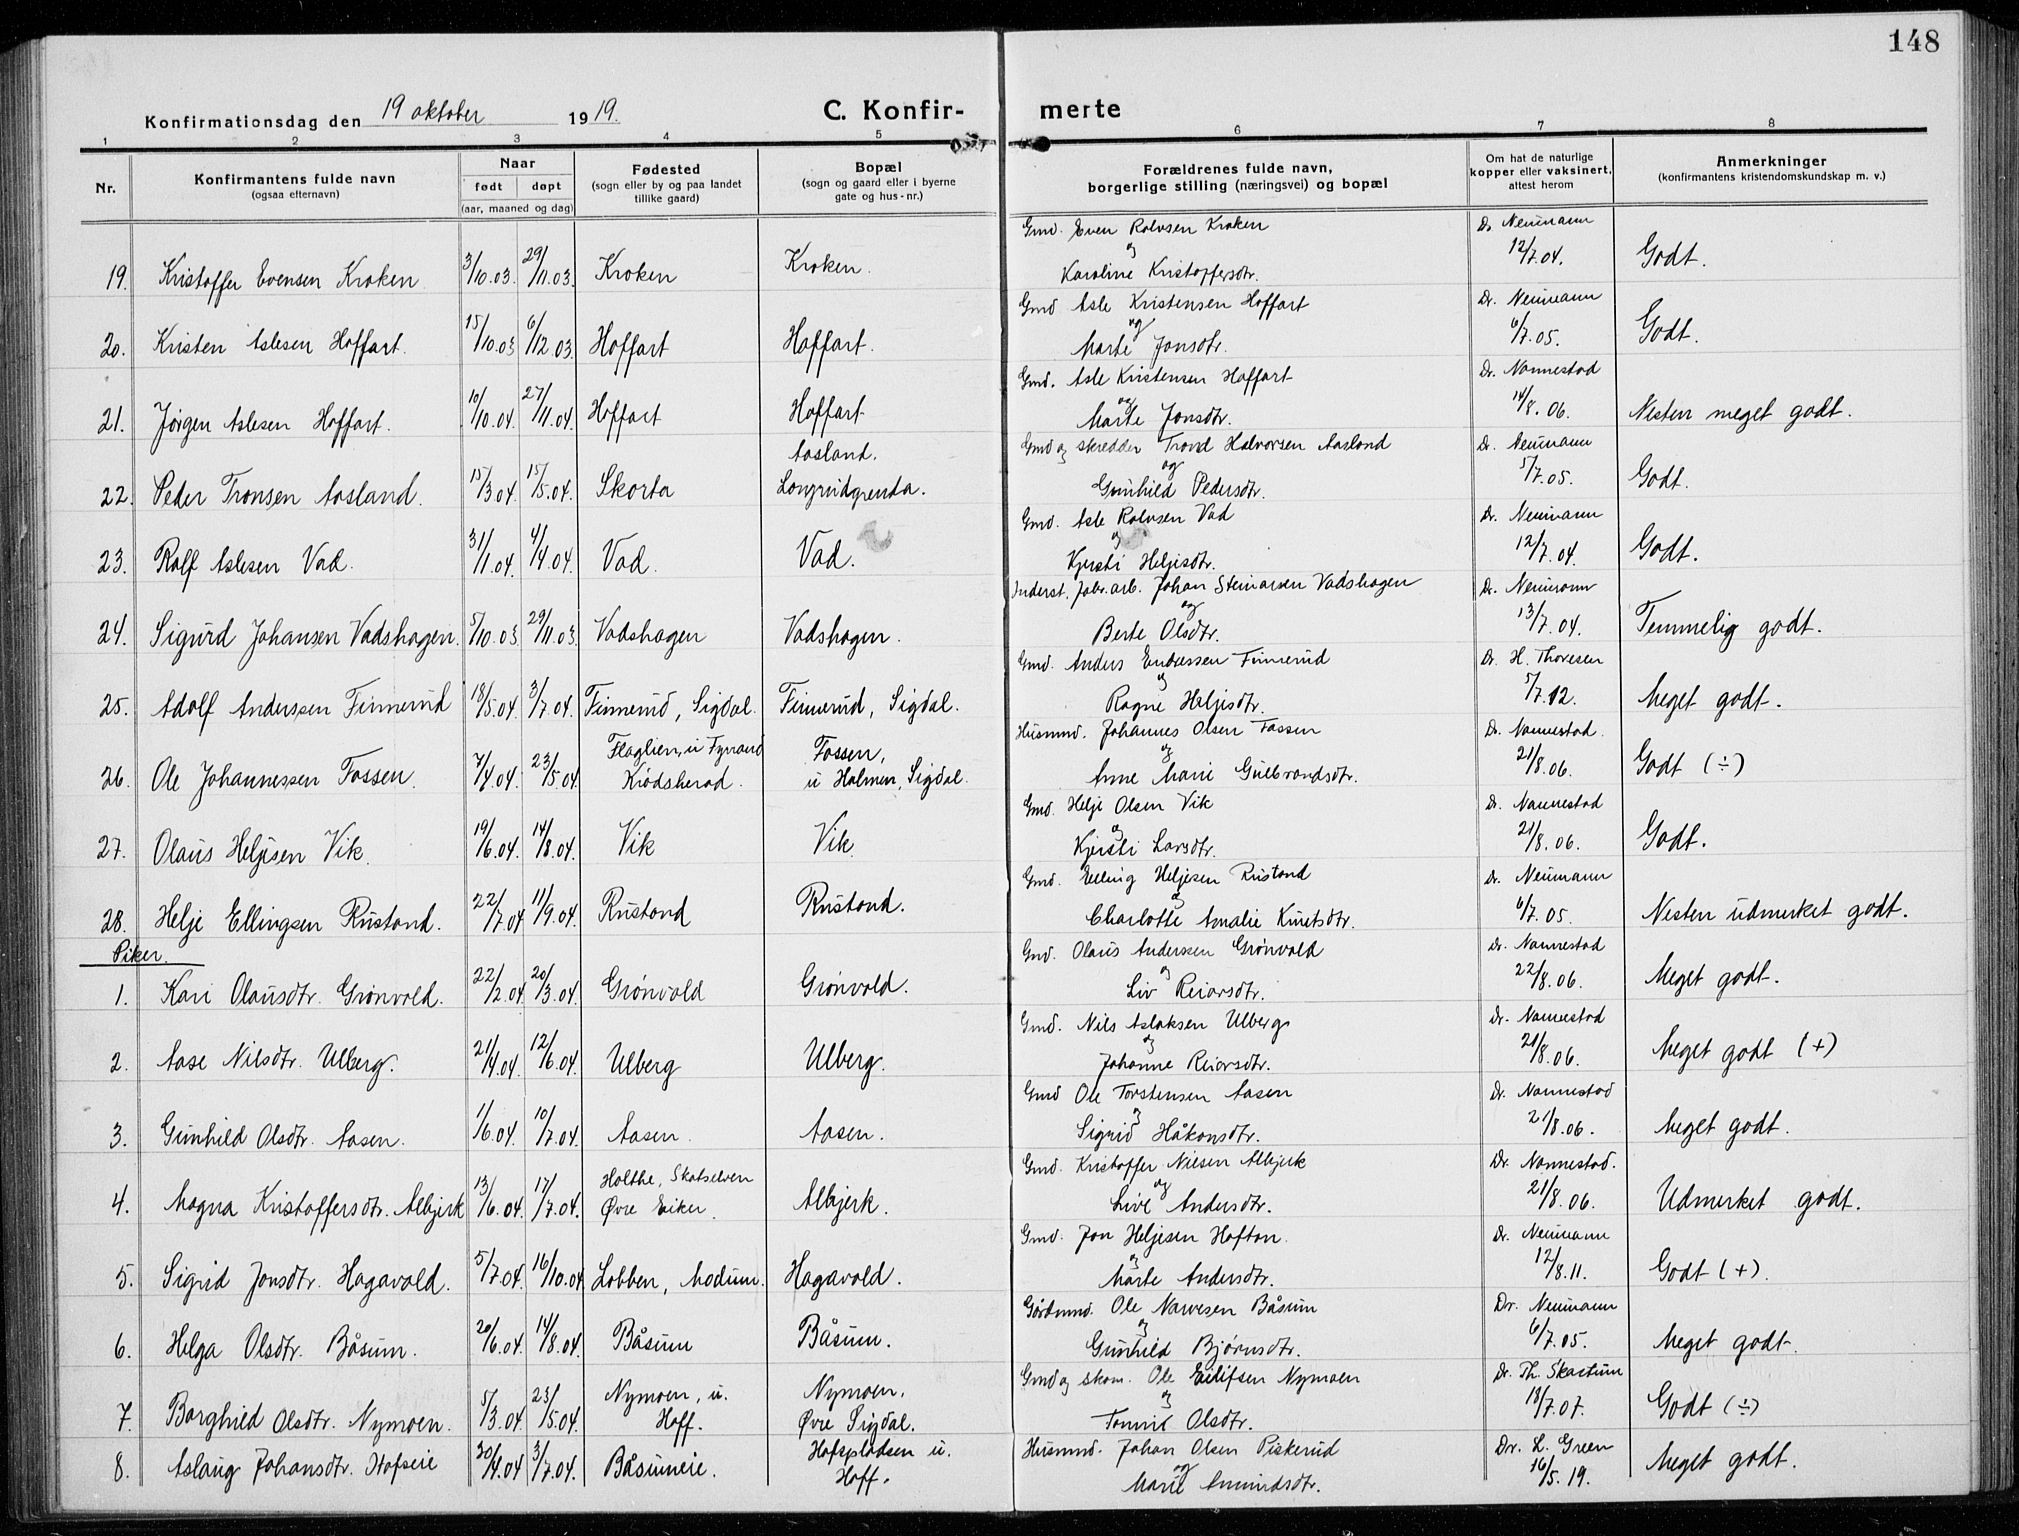 148
Konfirmationsdag den 19 oktober 1919.
C. Konfir-merte
1 2 3 4 5 6 7 8
Nr.
Konfirmantens fulde navn
(ogsaa efternavn)
Naar
født døpt
(aar, maaned og dag)
Fødested
(sogn eller by og paa landet
tillike gaard)
Bopæl
(sogn og gaard eller i byerne
gate og hus-nr.)
Forældrenes fulde navn,
borgerlige stilling (næringsvei) og bopæl
Om hat de naturlige
kopper eller vaksinert,
attest herom
Anmerkninger
(konfirmantens kristendomskundskap m. v.)
Gmd. Even Rolvsen Kroken Dr. Neumann
og
19. Kristoffer Evensen Kroken 3/10.03. 29/11.03. Kroken Kroken. Karoline Kristoffersdtr. 12/7.04. Godt.
Gmd Asle Kristensen Hoffart Dr. Neumann
og
20. Kristen Aslesen Hoffart. 15/10.03 6/12.03. Hoffart Hoffart. Marte Jonsdtr. 6/7.05. Godt.
Gmd. Asle Kristensen Hoffart Dr. Nannestad
og
21. Jørgen Aslesen Hoffart. 10/10.04. 27/11.04. Hoffart Hoffart Marte Jonsdtr. 14/8.06. Nesten meget godt.
Aasland. Gmd og skredder Trond Halvorsen Aasland Dr. Neumann
og
22. Peder Tronsen Aasland. 15/3.04. 15/5.04. Skorta Longrudgrenda. Gunhild Pedersdtr. 5/7.05. Godt.
Gmd. Asle Rolvsen Vad Dr. Neumann
og
23. Rolf Aslesen Vad. 31/1.04. 4/4.04. Vad. Vad. Kjersti Heljesdtr. 12/7.04. Godt.
Inderst, fabr. arb. Johan Steinarsen Vadshagen Dr. Neumann
og
24. Sigurd Johansen Vadshagen. 5/10.03 29/11.03. Vadshagen Vadshagen. Berte Olsdtr. 13/7.04. Temmelig godt.
Gmd. Anders Endressen Finnerud Dr. H. Thoresen
og
25. Adolf Anderssen Finnerud 18/5.04. 3/7.04. Finnerud, Sigdal. Finnerud, Sigdal. Ragne Heljesdtr. 5/7.12. Meget godt.
Flaglien, u Fyrrand Fossen, Husmnd. Johannes Olsen Fossen Dr. Nannestad.
og
26. Ole Johannessen Fossen. 7/4.04. 23/5.04. Krødsherad. u Holmen, Sigdal. Anne Marie Gulbrandsdtr. 21/8.06. Godt (÷)
Gmd. Helje Olsen Vik Dr. Nannestad
og
27. Olaus Heljesen Vik. 19/6.04. 14/8.04. Vik Vik. Kjersti Larsdtr. 21/8.06. Godt.
Gmd. Elling Heljesen Rustand Dr. Neumann
og
28. Helje Ellingsen Rustand. 22/7.04 11/9.04. Rustand Rustand. Charlotte Amalie Knutsdtr. 6/7.05. Nesten udmerket godt.
Piker. Gmd. Olaus Anderssen Grønvold Dr. Nannestad
og
1. Kari Olausdtr. Grønvold. 22/2.04. 20/3.04. Grønvold Grønvold. Liv Reiarsdtr. 22/8.06. Meget godt.
Gmd. Nils Aslaksen Ulberg Dr. Nannestad
og
2. Aase Nilsdtr. Ulberg. 21/4.04. 12/6.04. Ulberg Ulberg. Johanne Reiarsdtr. 21/8.06. Meget godt (+)
Gmd Ole Torstensen Aasen Dr. Nannestad
og
3. Gunhild Olsdtr. Aasen. 1/6.04. 10/7.04. Aasen. Aasen. Sigrid Håkonsdtr. 21/8.06. Meget godt.
Holthe, Skotselven Gmd. Kristoffer Nilsen Albjerk Dr. Nannestad.
og
4. Magna Kristoffersdtr. Albjerk 13/6.04. 17/7.04. Øvre Eiker. Albjerk. Live Andersdtr. 21/8.06. Udmerket godt.
Gmd. Jon Heljesen Hofton Dr. Neumann
og
5. Sigrid Jonsdtr. Hagavold. 5/7.04. 16/10.04 Lobben, Modum. Hagavold. Marte Andersdtr. 12/8.11. Godt (+).
Gårdmnd. Ole Narvesen Båsum Dr. Neumann
og
6. Helga Olsdtr. Båsum. 20/6.04. 14/8.04. Båsum Båsum. Gunhild Bjørnsdtr. 6/7.05. Meget godt.
Nymoen, u. Nymoen. Gmd og skom. Ole Eilifsen Nymoen Dr. Th. Skartum
og
7. Borghild Olsdtr. Nymoen. 5/3.04. 23/5.04. Hoff. Øvre Sigdal. Tonnil Olsdtr. 18/7.07. Godt (÷)
Hofspladsen u. Husmnd. Johan Olsen Piskerud Dr. L. Green
og
8. Aslaug Johansdtr. Hofseie 30/4.04 3/7.04. Båsumeie. Hoff. Marie Amundsdtr. 16/5.19. Meget godt.